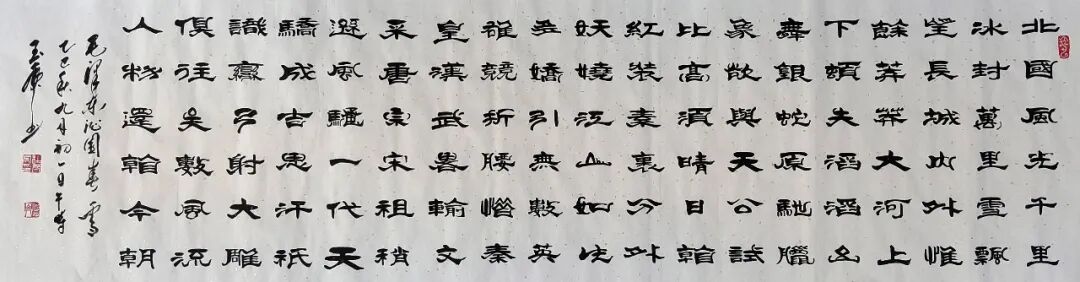 北國風光千里
冰封萬里雪飄
望長城內外惟
餘莽莽大河上
下頓失滔滔山
舞銀蛇原馳臘
象欲與天公試
比高須晴日看
紅裝素裹分外
妖嬈江山如此
多嬌引無數英
雄競折腰惜秦
皇漢武略輸文
采唐宗宋祖稍
遜風騷一代天
驕成吉思汗祇
識彎弓射大雕
俱往矣數風流
人物還看今朝
毛澤東沁園春雪
乙巳秋九月初一日午時
玉書